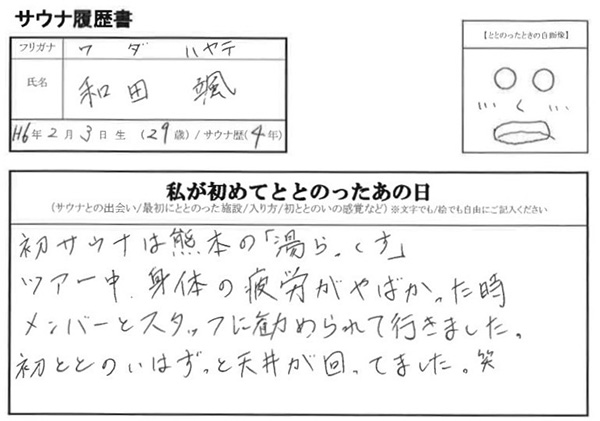 サウナ履歴書
フリガナ ワダ ハヤテ
氏名 和田 颯
H6年2月3日生(29歳)/サウナ歴(4年)
【ととのったときの自画像】
私が初めてととのったあの日
(サウナとの出会い/最初にととのった施設/入り方/初ととのいの感覚など)※文字でも/絵でも自由にご記入ください
初サウナは熊本の「湯らっくす」
ツアー中、身体の疲労がやばかった時
メンバーとスタッフに勧められて行きました。
初ととのいはずっと天井が回ってました。笑